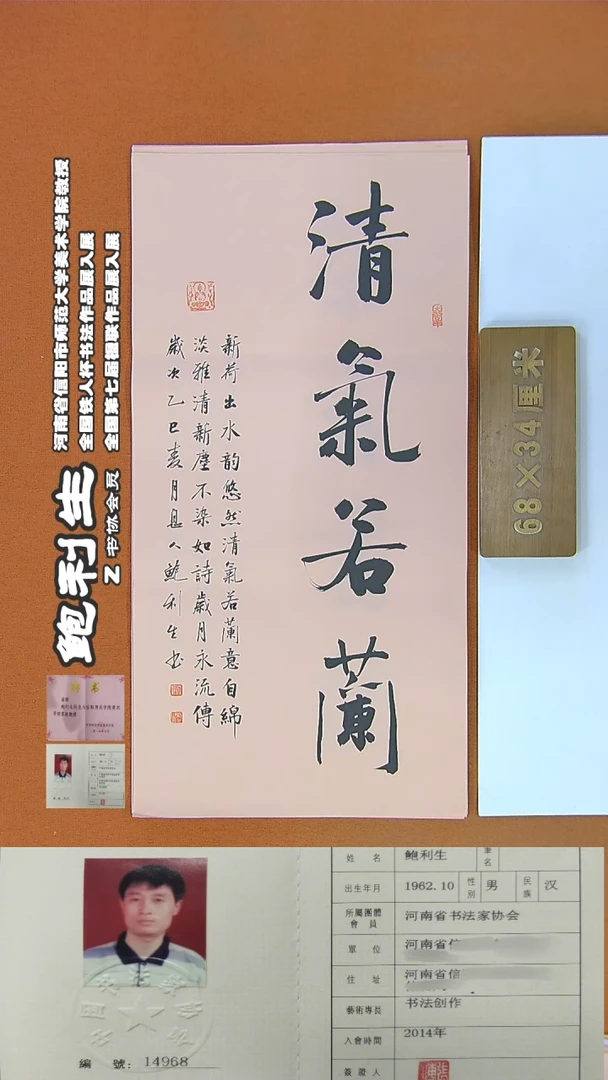 清氣若蘭
新荷出水韵悠然清氣若蘭意自綿
淡雅清新塵不染如詩歲月永流傳
歲次乙巳春月愚人鲍利生书
68×34厘米
河南省信阳市师范大学美术学院教授
全国铁人杯书法作品展入展
全国第七届楹联作品展入展
鲍利生
Z书协会员
聘书
姓 名 鲍利生 笔名
出生年月 1962.10 性别 男 民族 汉
所屬團體會員 河南省书法家协会
單 位 河南省信
住 址 河南省信
藝術專長 书法创作
入會時間 2014年
簽證人
編 號: 14968